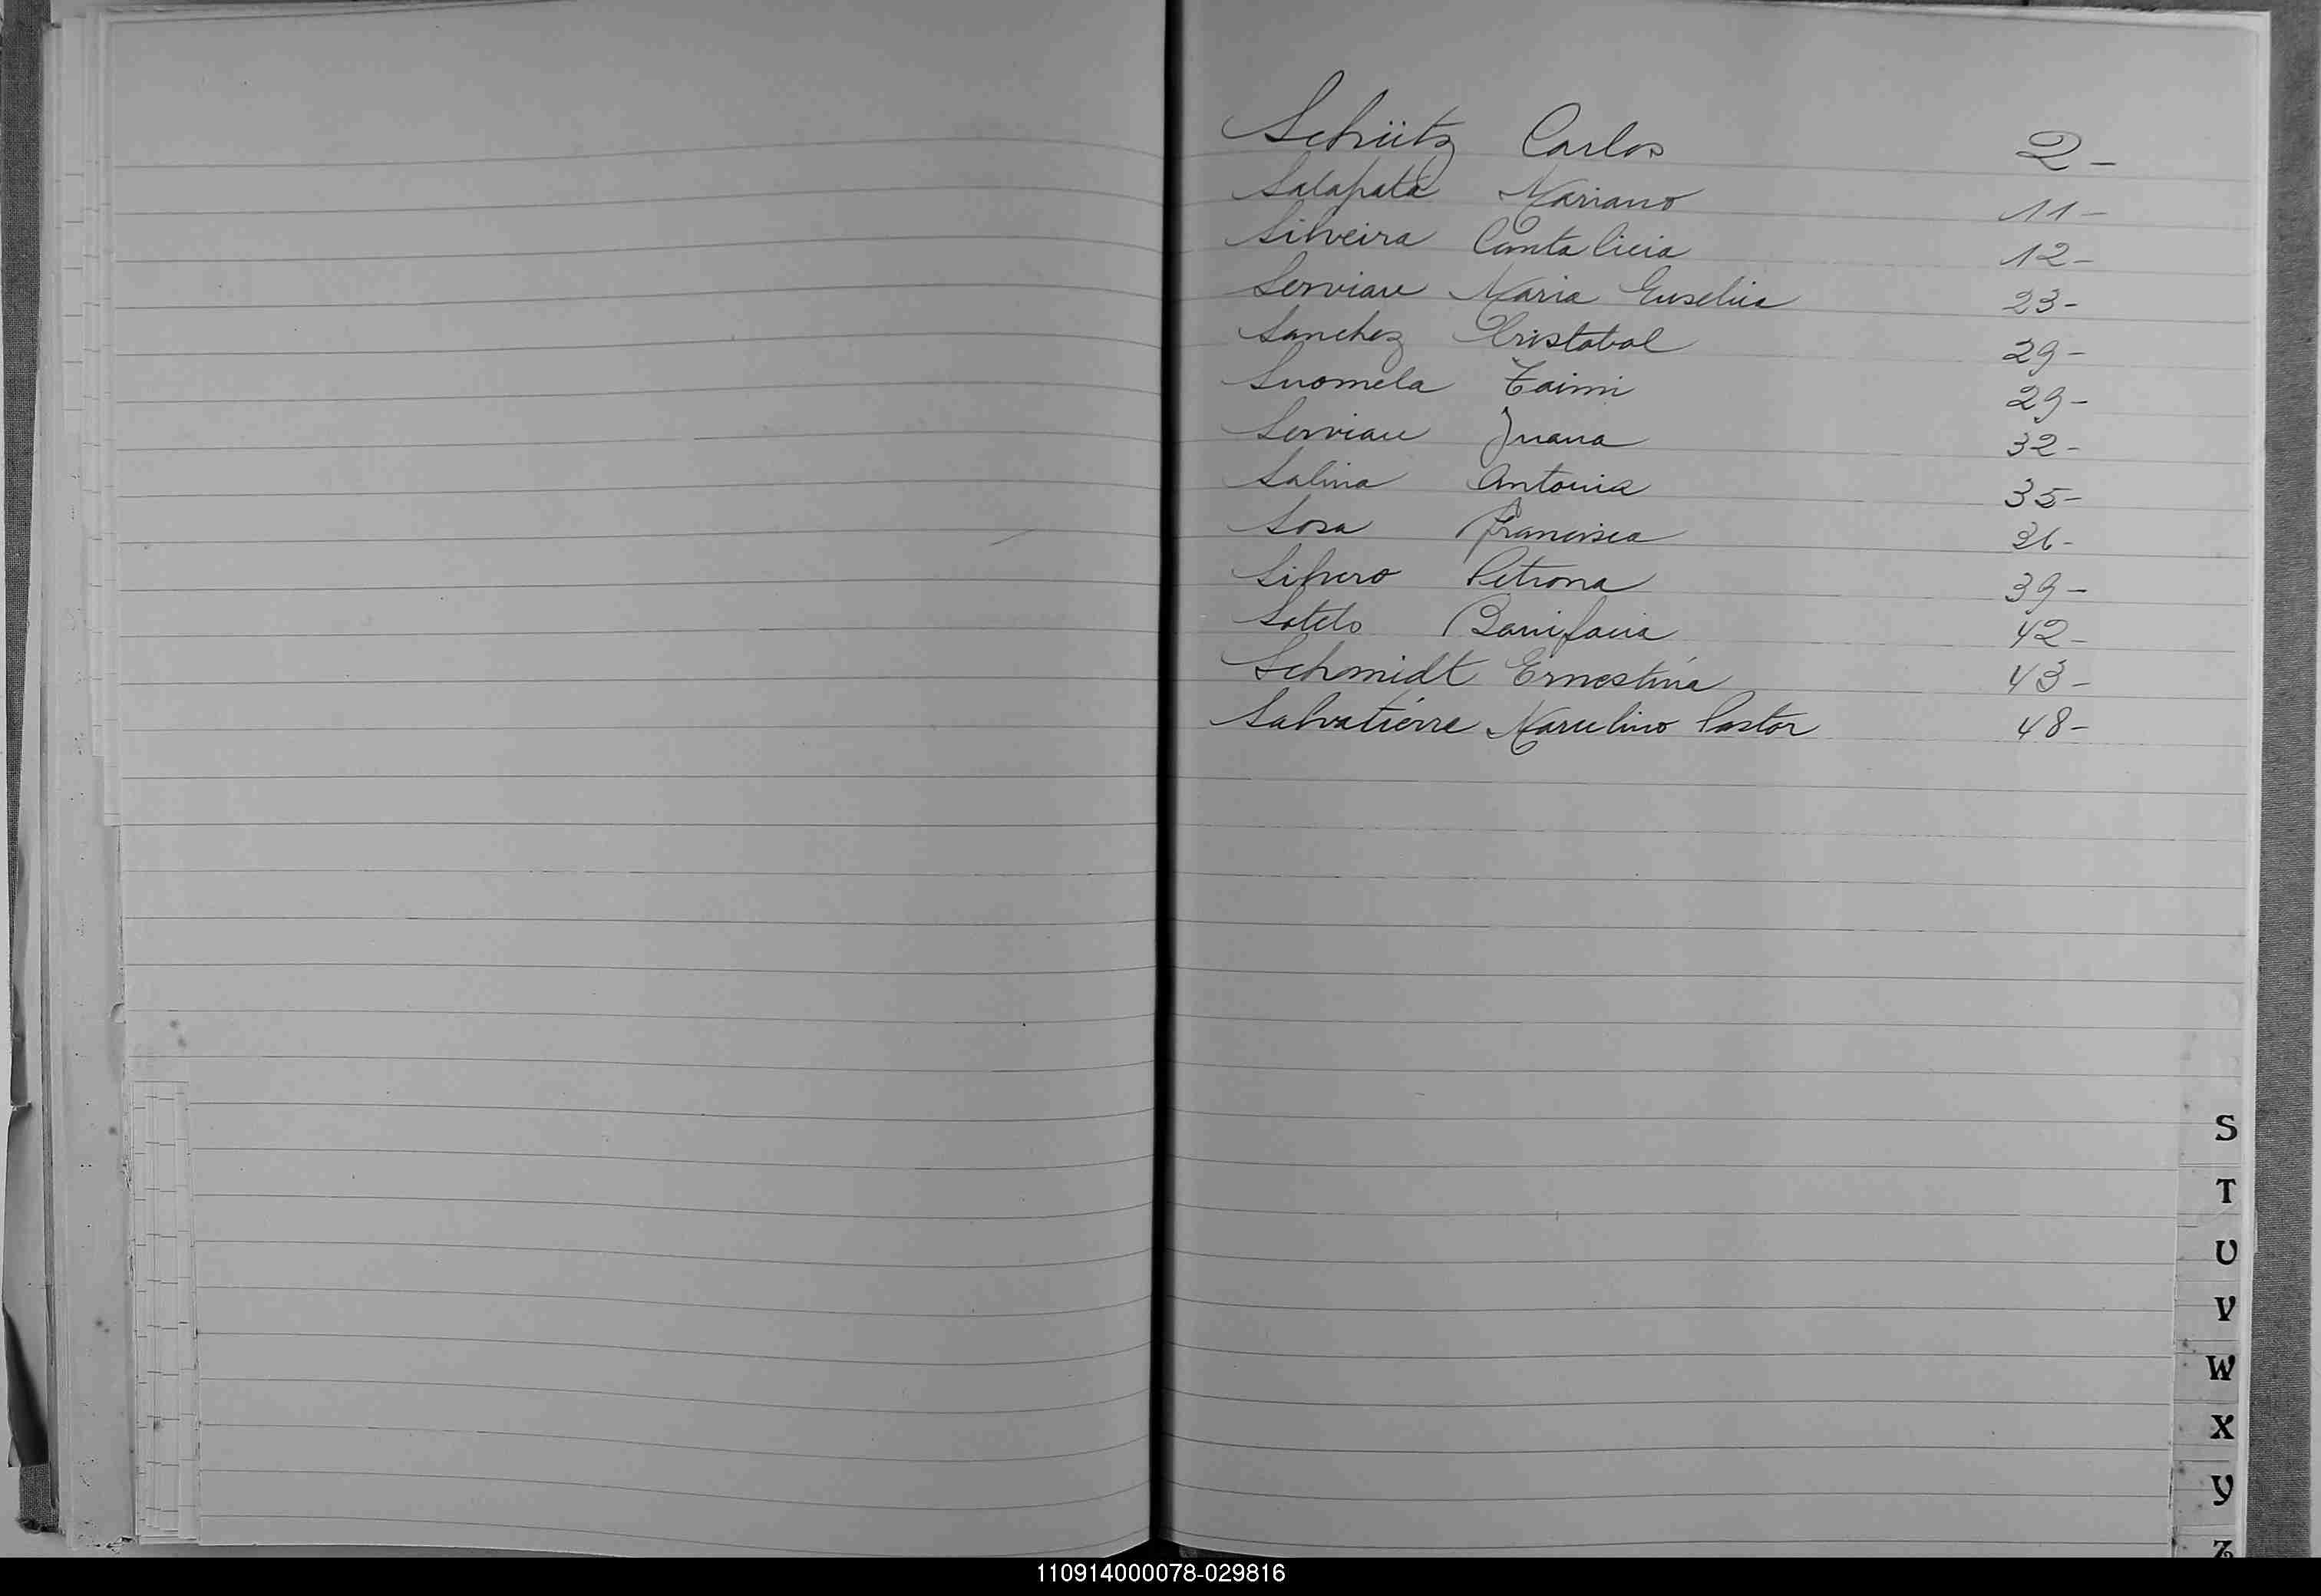 Schütz Carlos 2-
Salapata Mariano 11-
Silveira Cantalicia 12-
Servian Maria Eusebia 23-
Sanchez Cristobal 29-
Suomela Taimi 29-
Servian Juana 32-
Salina Antonia 35-
Sosa Francisca 36-
Silvero Petrona 39-
Sotelo Bonifacia 42-
Schmidt Ernestina 43-
Salvatierre Marcelino Pastor 48-
S
T
U
V
W
X
Y
Z
110914000078-029816